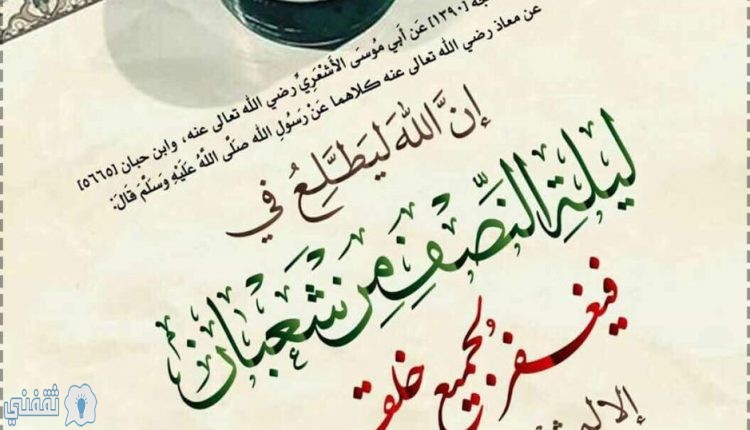 [١٣٩٠] عَن أَبي مُوسَى الأَشْعَرِيِّ رضي الله تعالى عنه، وابن حبان [٥٦٦٥]
عن معاذ رضي الله تعالى عنه كلاهما عَنْ رَسُولِ الله صلَّى اللَّهُ عَلَيْهِ وَسَلَّمَ قَالَ:
إِنَّ اللَّهَ لَيَطَّلِعُ فِي
لَيْلَةِ النِّصْفِ مِنْ شَعْبَانَ
فَيَغْفِرُ لِجَمِيعِ خَلْقِ
إلا
ثقفني